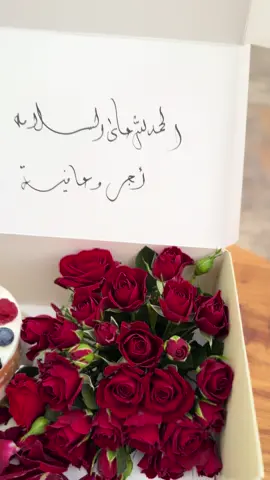 الحمدلله على السلامه
أجر وعافية